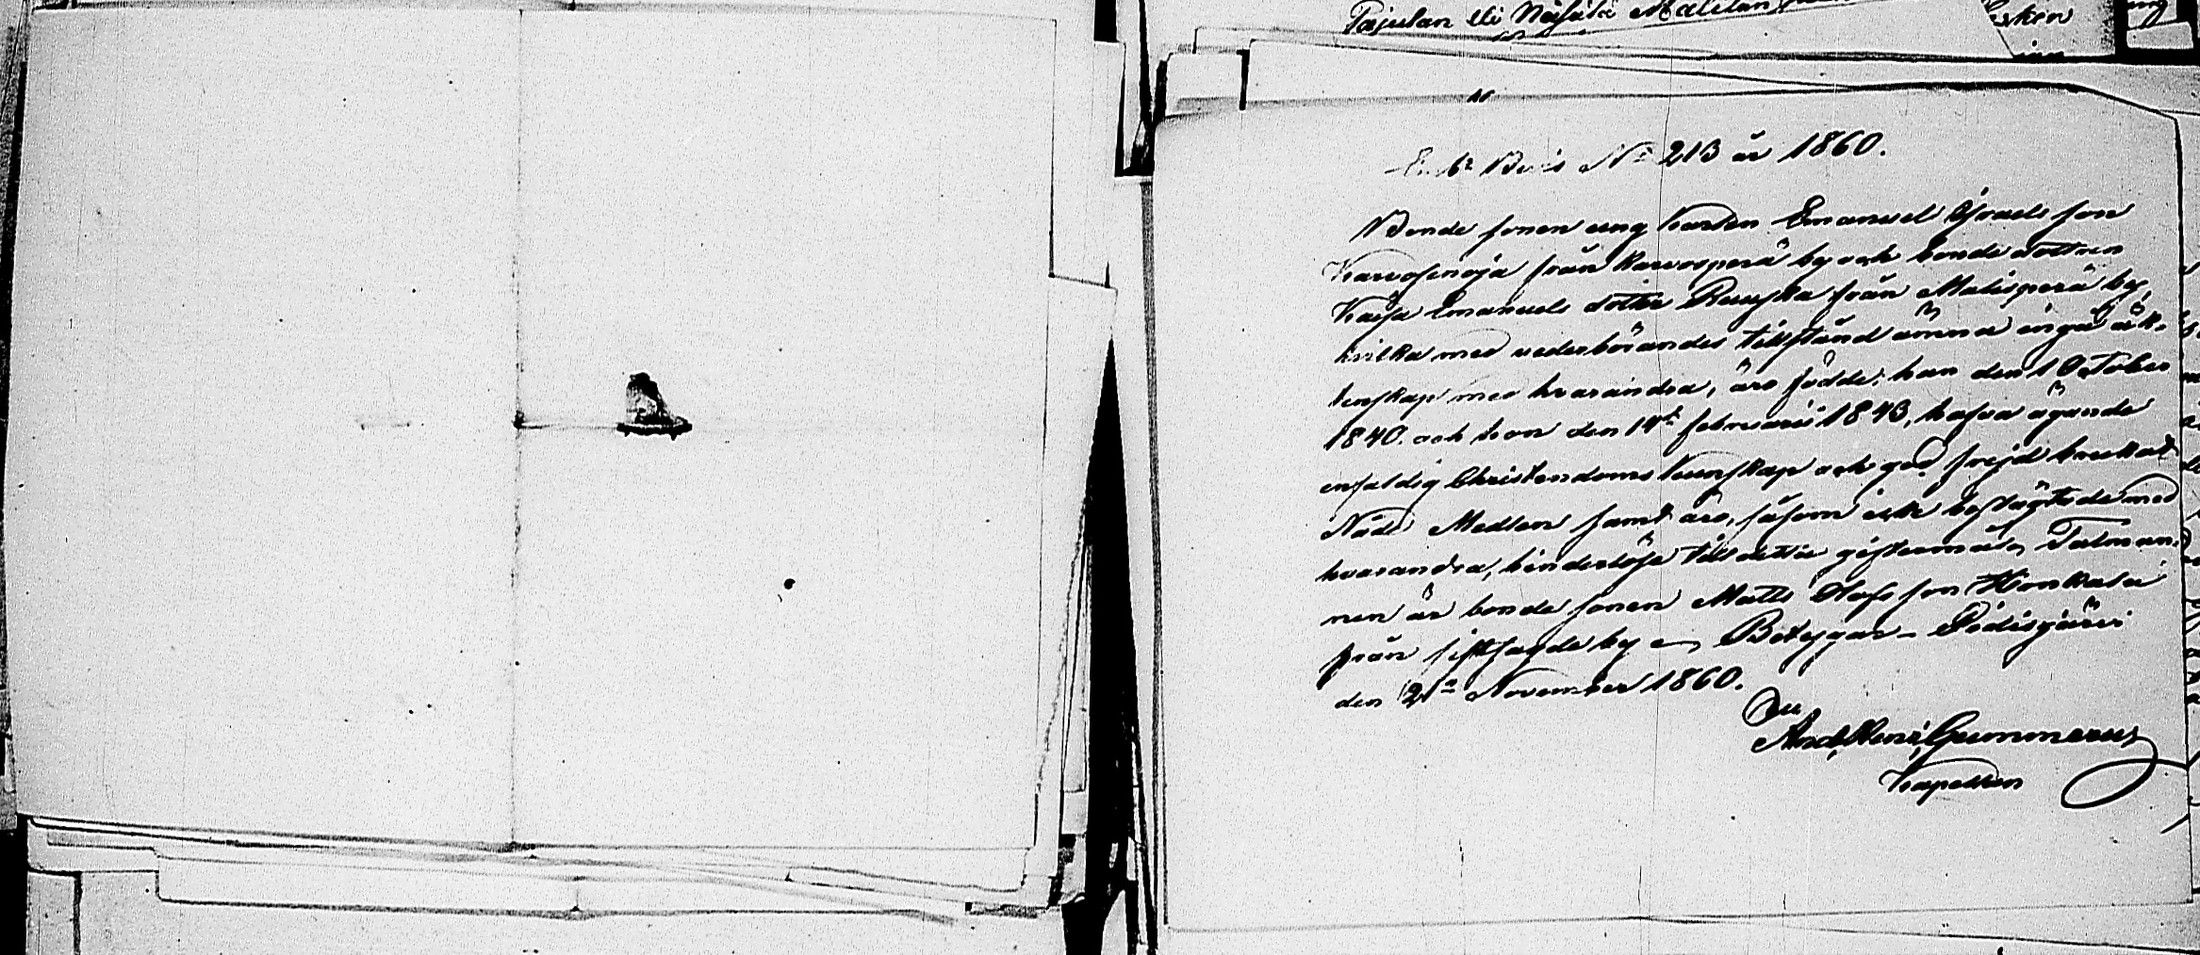 Pajulan eli
sken
Enl. Bevis No 213 år 1860.
Bonde sonen ung karlen Emanuel Israels son
Karvosenoja från Karvosperä by och bonde dottren
Kaisa Emanuels dotter Ruuska från Malisperä by,
hvilka med vederbörandes tillstånd ämna ingå äk-
tenskap med hvarandra, äro födde: han den 1 October
1840. och hon den 14de februarii 1843, hafva ägande
enfaldig Christendoms kunskap och god frejd brukat
Nåde Medlen samt äro, såsom icke beslägtade med
hvarandra, hinderlöse till detta giftermål, Talman-
nen är bonde sonen Matts Olofs son Honkala
från sistsagde by Betygar Pidisjärvi
den 2dra November 1860.
And. Henr. Gummerus
Kapellan